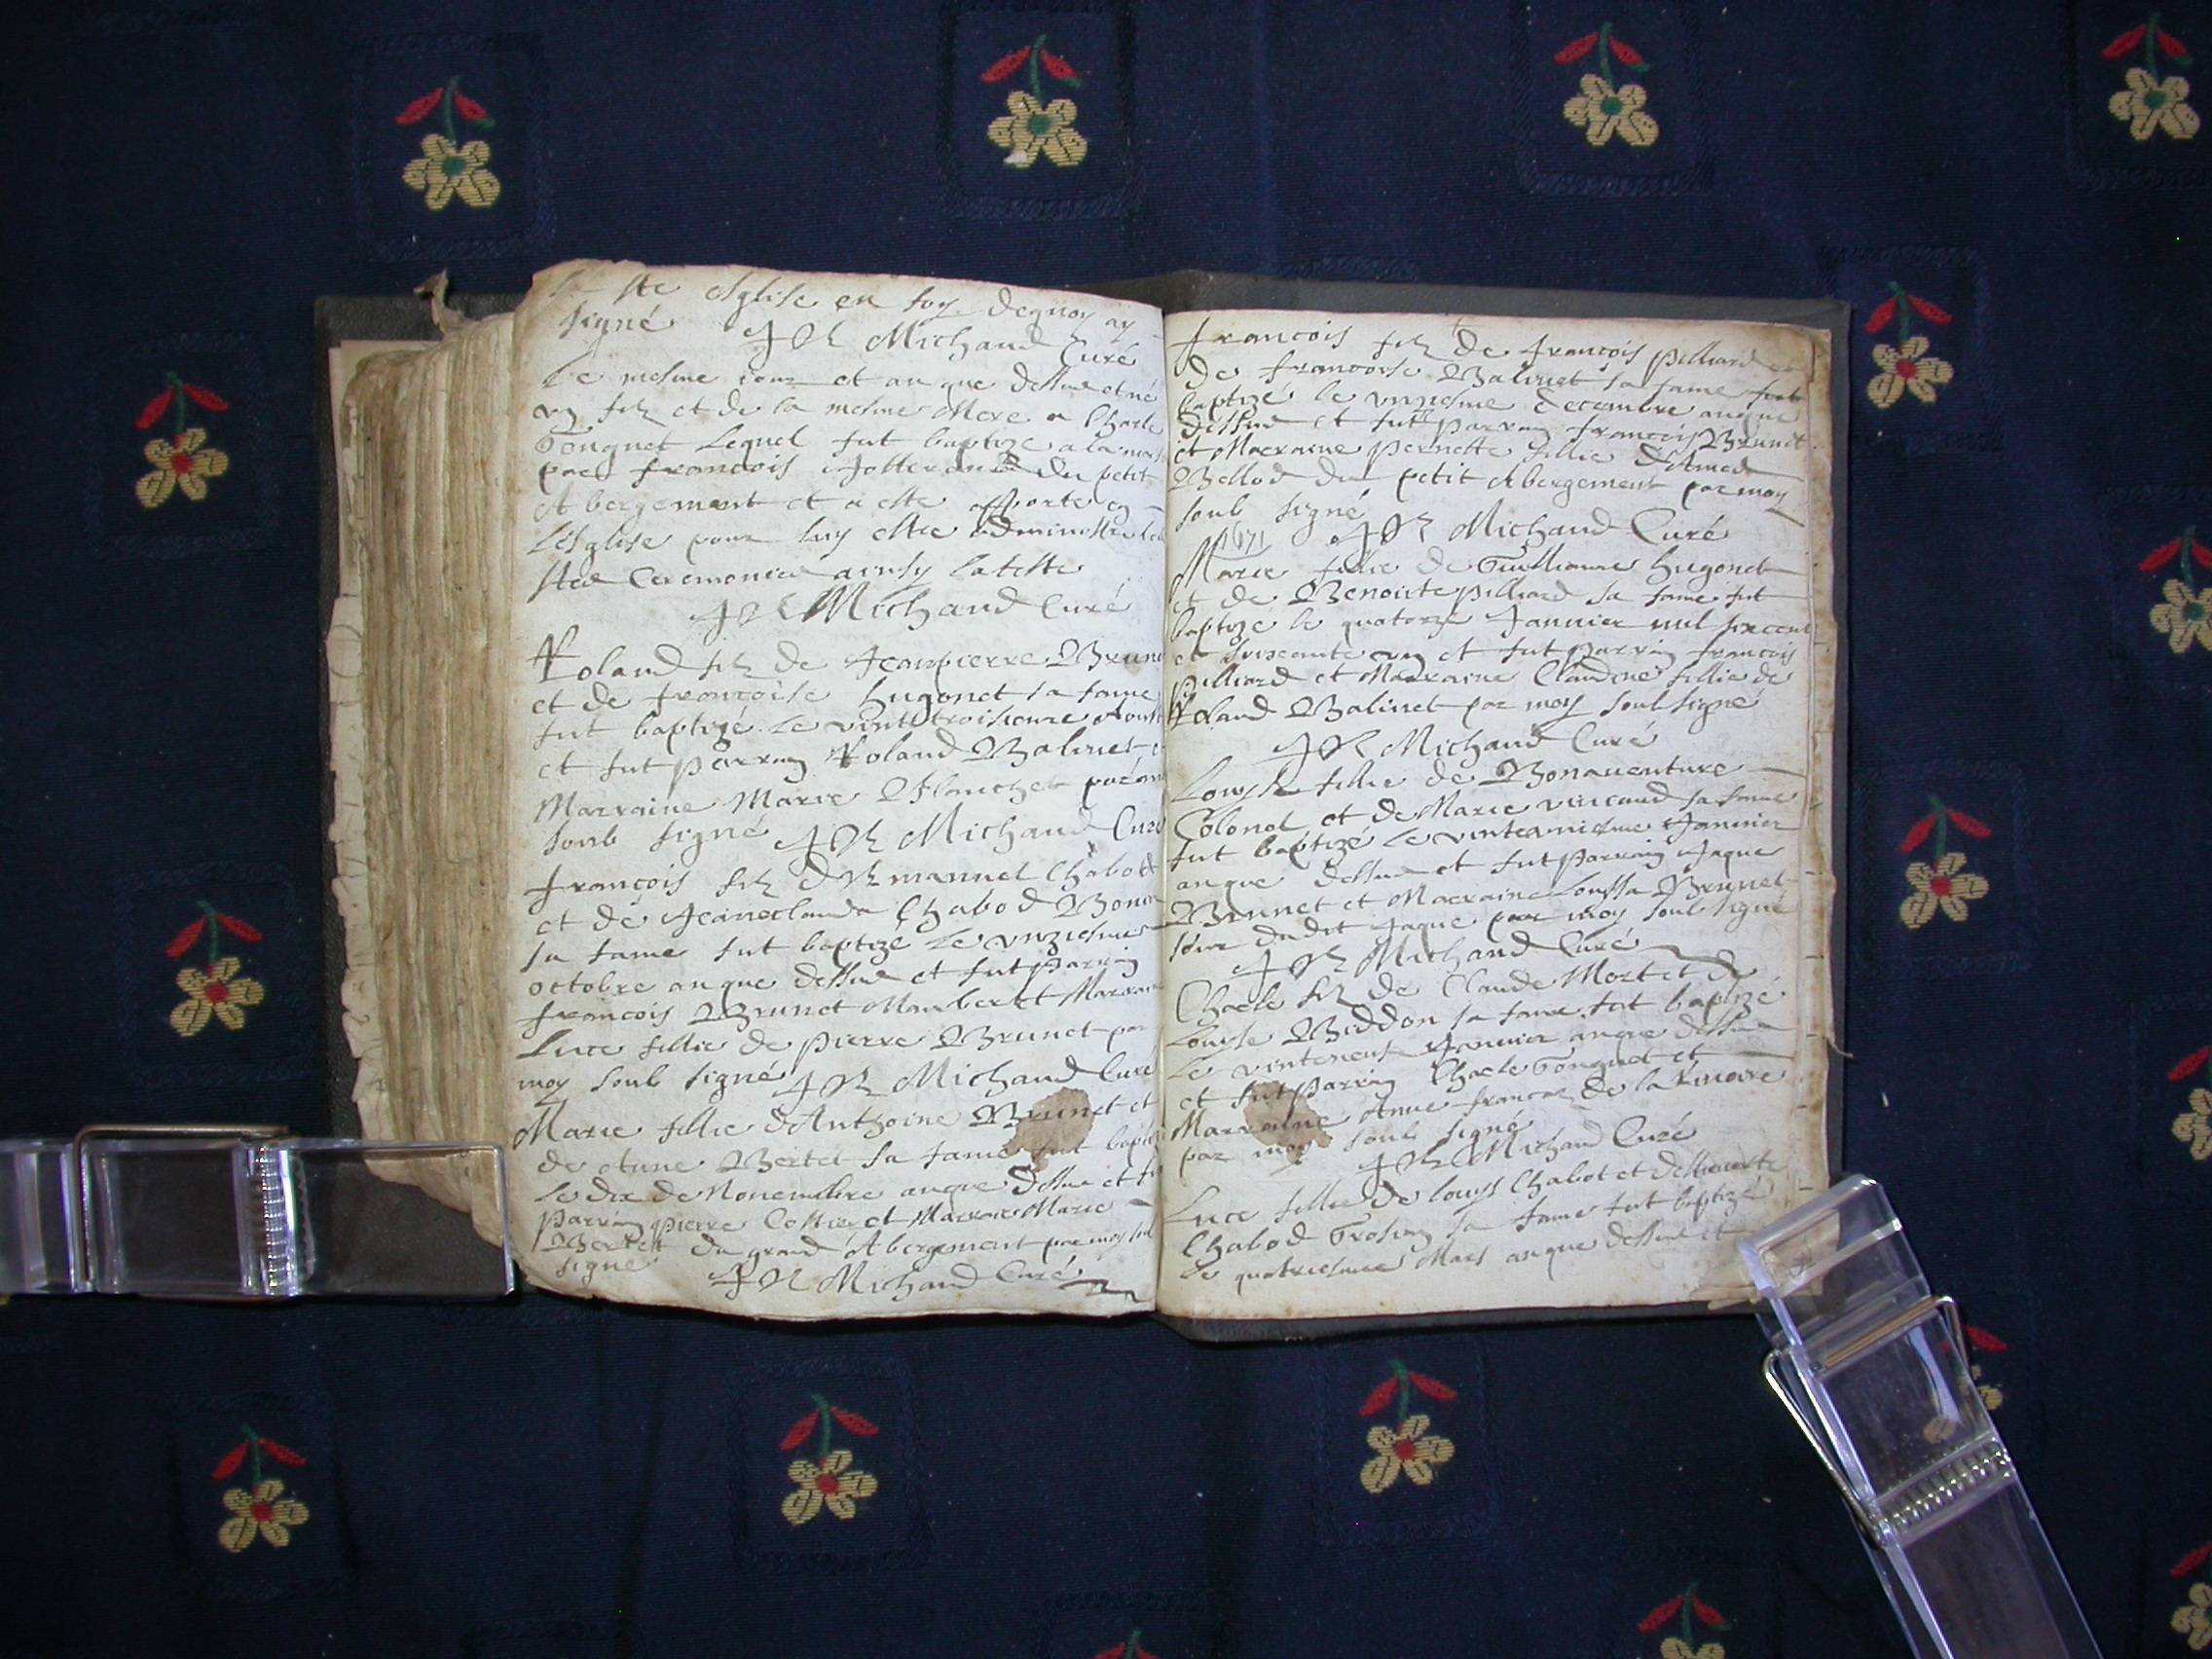 la ste esglise en foy dequoy ay
signé Michaud Curé
le mesme iour et an que dessus est né
vn filz et de la mesme Mere a Charle
Fonquet lequel fut baptize a la
par francois Jotterand du petit
Abergement et a este apporte en
lesglise pour luy estre administre les
stes Ceremonies ainsy latteste
Michaud Curé
Roland filz de Jeanpierre Brune
et de françoise hugonet sa fame
fut baptizé le vint troisieme Aoust
et fut parrain Roland Balivet
Marraine Marie Blanchet par
soub signé Michaud Curé
françois filz d'Emanuel Chabod
et de Jeaneclauda Chabod Bonon
sa fame fut baptizé le vnziesme
octobre anque dessus et fut parrain
francois Brunet Maubert et Marraine
Luce fillie de pierre Brunet par
moy soub signé Michaud Curé
Marie fillie d'Anthoine Brunet et
de Anne Bertet sa fame fut baptizé
le dix de Nouembre anque dessus et fu
parrain pierre et Marraine Marie
Bertet du grand Abergement par moy soub
signé Michaud Curé
francois filz de françois pilliard et
de francoise Balivet sa fame fut
baptizé le vnziesme decembre anque
dessus et fut parrain francois Brunet
et Marraine pernette fillie d'Amed
Bellod du petit Abergement par moy
soub signé Michaud Curé
1671
Marie fillie de Guillieaume hugonet
et de Benoite pilliard sa fame fut
baptizé le quatorze Januier mil six cent
et soixante vn et fut parrain francois
pilliard et Marraine Claudine fillie de
Roland Balivet par moy soub signé
Michaud Curé
Louyse fillie de Bonauenture
Colonel et de Marie sa fame
fut baptizé le Januier
anque dessus et fut parrain Jaque
Brunet et Marraine Louysa Brunet
soeur dudit Jaque par moy soub signé
Michaud Curé
Charle filz de Claude Mortet de
Louyse Biddon sa fame fut baptizé
le Januier anque dessus
et fut parrain Charle Fonquet et
Marraine Anne de la
par moy soub signé
Michaud Curé
Luce fillie de louys Chabot et
Chabod sa fame fut baptizé
le quatriesme Mars anque dessus et